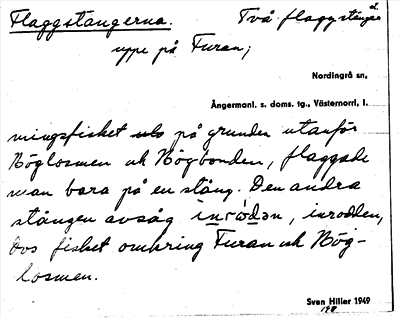 Flaggstängerna. Två flaggstänger
uppe på Furan;
Nordingrå sn,
Ångermanl. s. doms. tg., Västernorrl. l.
ningsfisket ute på grunden utanför
Höglosmen och Högbonden, flaggade
man bara på en stång. Den andra
stången avsåg inródən, inrodden,
dvs fisket omkring Furan och Hög-
losmen.
Sven Hiller 1949
198